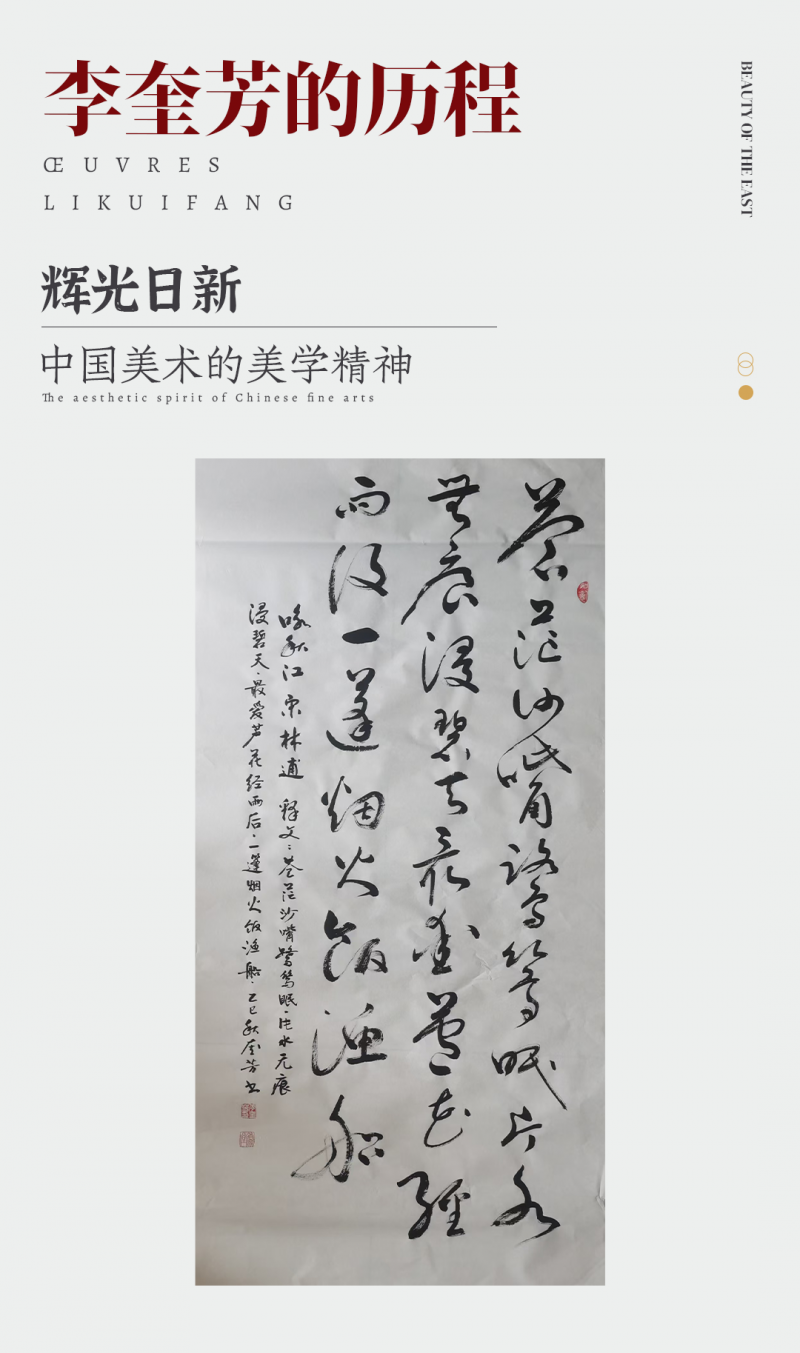 李奎芳的历程
ŒUVRES
LIKUIFANG
BEAUTY OF THE EAST
辉光日新
中国美术的美学精神
The aesthetic spirit of Chinese fine arts
蒼茫沙嘴鷺鷥眠片水
無痕浸碧天最愛蘆花經
雨後一蓬烟火飯漁船
咏秋江 宋林逋 释文：苍茫沙嘴鹭鸶眠·片水无痕
浸碧天·最爱芦花经雨后·一蓬烟火饭渔船·乙巳秋奎芳书